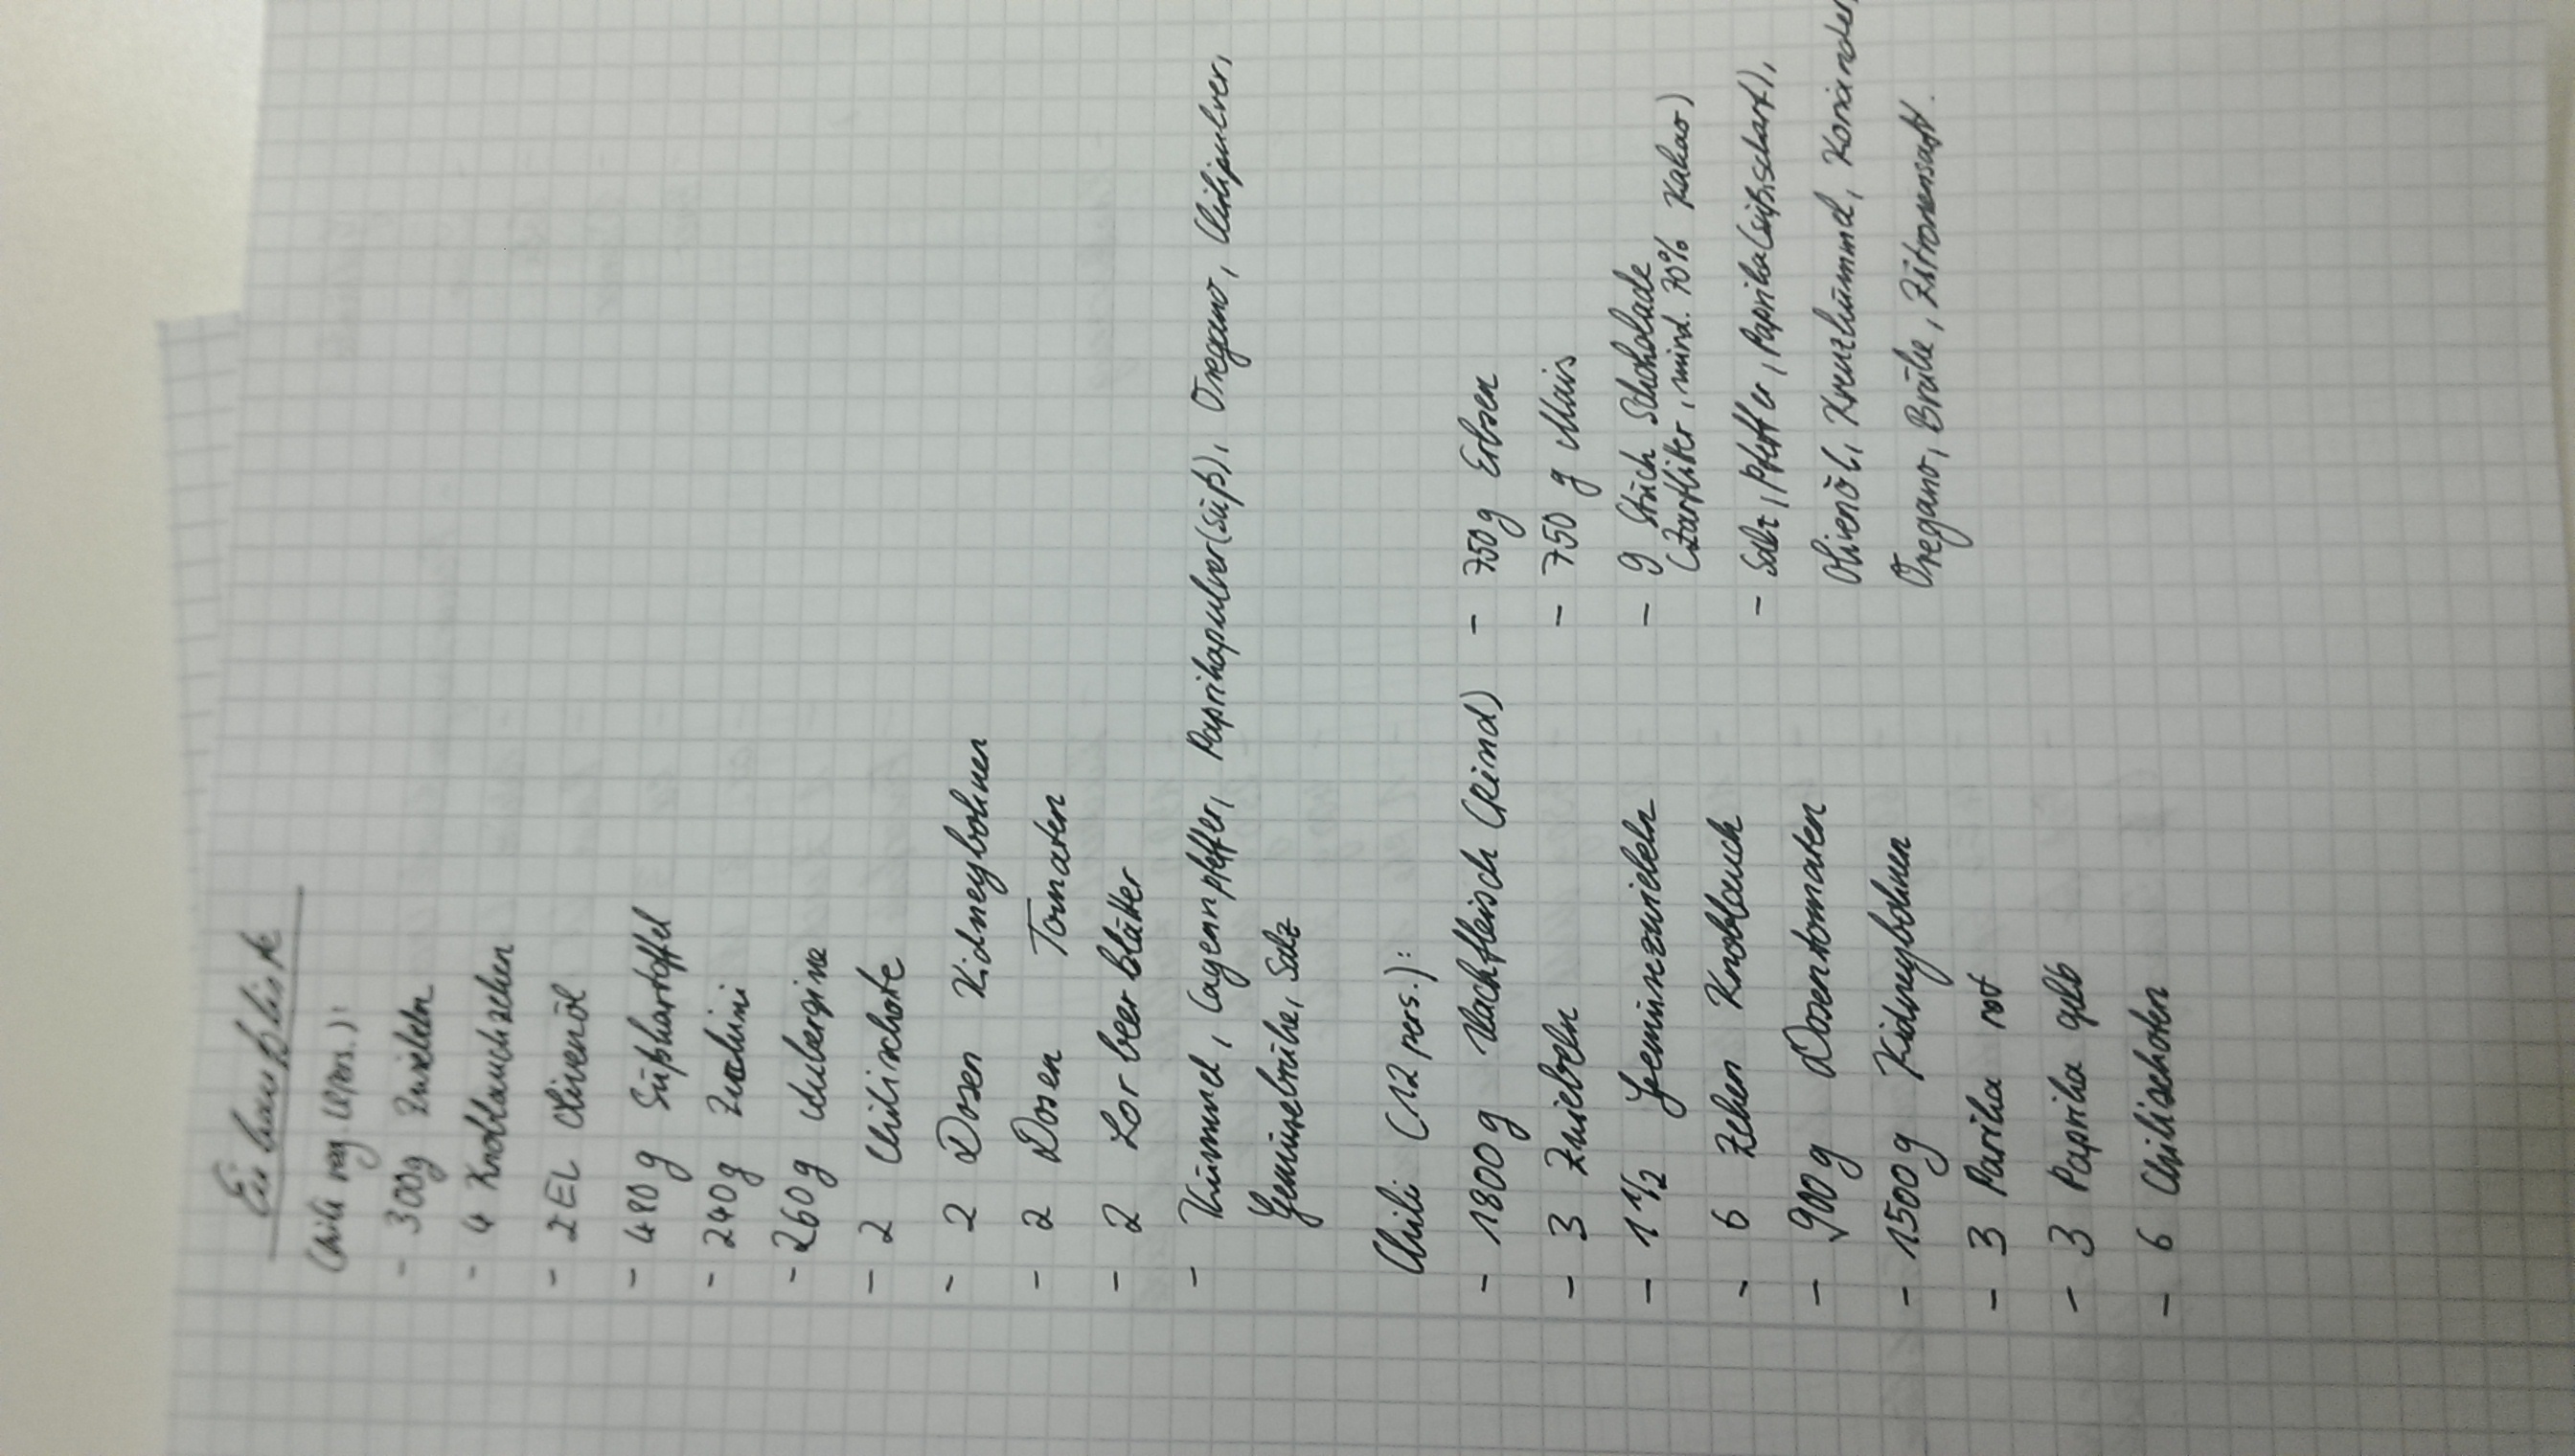 Einkaufsliste
Chili veg. (4 Pers.):
- 300g Zwiebeln
- 4 Knoblauchzehen
- 2 EL Olivenöl
- 480 g Süßkartoffel
- 240g Zuchini
- 260g Aubergine
- 2 Chilischote
- 2 Dosen Kidneybohnen
- 2 Dosen Tomaten
- 2 Lorbeerblätter
- Kümmel, Cayennpfeffer, Paprikapulver(süß), Oregano, Chilipulver,
Gemüsebrühe, Salz
Chili (12 pers.):
- 1800g Hackfleisch (Rind)
- 3 Zwiebeln
- 1 1/2 Gemüsezwiebeln
- 6 Zehen Knoblauch
- 900g Dosentomaten
- 1500g Kidneybohnen
- 3 Parika rot
- 3 Paprika gelb
- 6 Chilischoten
- 750g Erbsen
- 750 g Mais
- 9 Stück Schokolade
(Zartbitter, mind. 70% Kakao)
- Salz, Pfeffer, Paprika(süß,scharf),
Olivenöl, Kreuzkümmel, Koriander,
Oregano, Brühe, Zitronensaft.